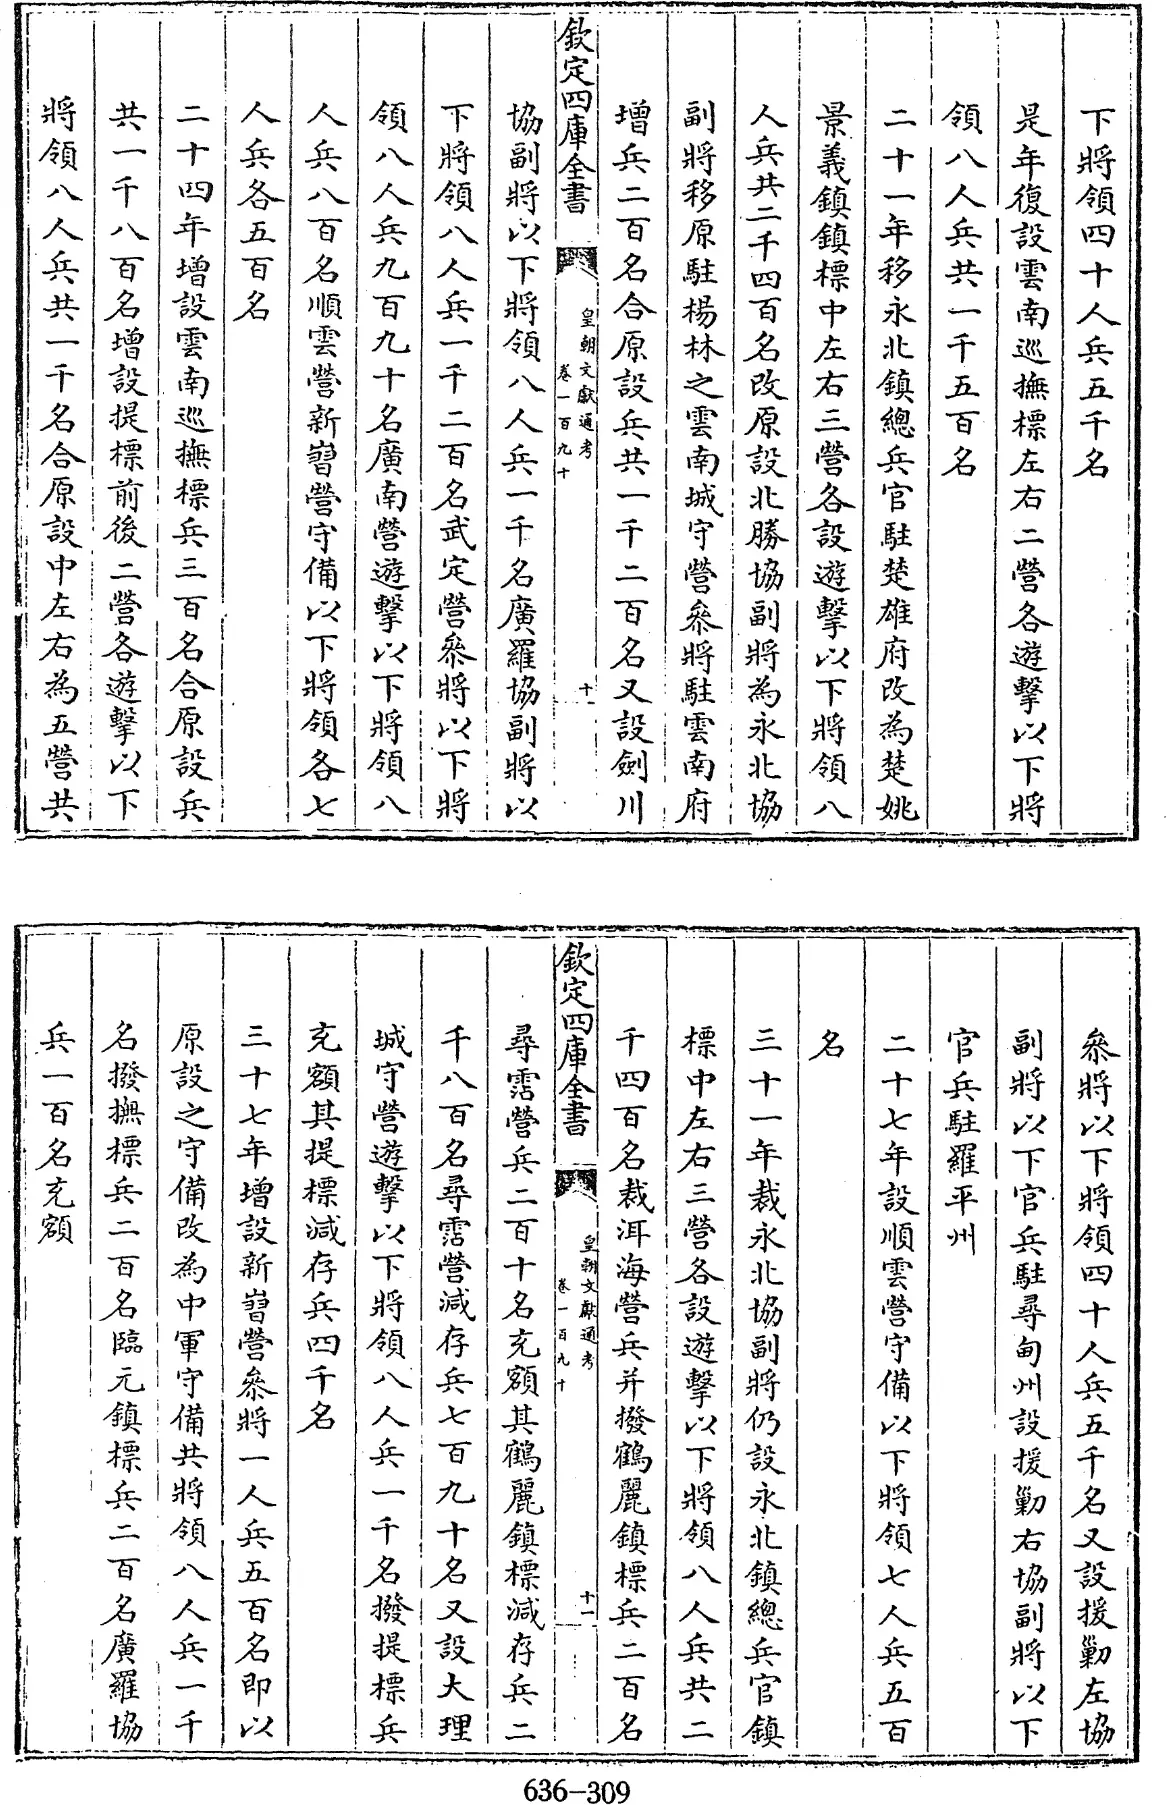 下將領四十人兵五千名
是年復設雲南巡撫標左右二營各遊擊以下將
領八人兵共一千五百名
二十一年移永北鎮總兵官駐楚雄府改為楚姚
景義鎮鎮標中左右三營各設遊擊以下將領八
人兵共二千四百名改原設北勝協副將為永北協
副將移原駐楊林之雲南城守營叅將駐雲南府
增兵二百名合原設兵共一千二百名又設劍川
欽定四庫全書
皇朝文獻通考
卷一百九十
十
協副將以下將領八人兵一千名廣羅協副將以
下將領八人兵一千二百名武定營叅將以下將
領八人兵九百九十名廣南營遊擊以下將領八
人兵八百名順雲營新嶍營守備以下將領各七
人兵各五百名
二十四年增設雲南巡撫標兵三百名合原設兵
共一千八百名增設提標前後二營各遊擊以下
將領八人兵共一千名合原設中左右為五營共
叅將以下將領四十人兵五千名又設援勦左協
副將以下官兵駐尋甸州設援勦右協副將以下
官兵駐羅平州
二十七年設順雲營守備以下將領七人兵五百
名
三十一年裁永北協副將仍設永北鎮總兵官鎮
標中左右三營各設遊擊以下將領八人兵共二
千四百名裁洱海營兵并撥鶴麗鎮標兵二百名
欽定四庫全書
皇朝文獻通考
卷一百九十
十一
尋霑營兵二百十名充額其鶴麗鎮標減存兵二
千八百名尋霑營減存兵七百九十名又設大理
城守營遊擊以下將領八人兵一千名撥提標兵
充額其提標減存兵四千名
三十七年增設新嶍營叅將一人兵五百名即以
原設之守備改為中軍守備共將領八人兵一千
名撥撫標兵二百名臨元鎮標兵二百名廣羅協
兵一百名充額
636-309